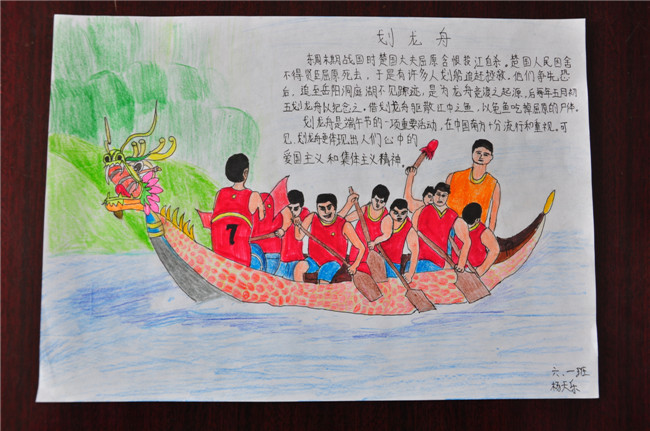 划龙舟
东周末期战国时楚国大夫屈原含恨投江自杀。楚国人民因舍
不得贤臣屈原死去，于是有许多人划船追赶拯救。他们争先恐
后，追至岳阳洞庭湖不见踪迹，是为龙舟竞渡之起源，后每年五月初
五划龙舟以纪念之。借划龙舟驱散江中之鱼，以免鱼吃掉屈原的尸体。
划龙舟是端午节的一项重要活动，在中国南方十分流行和重视。可
见，划龙舟更体现出人们心中的
爱国主义和集体主义精神。
7
六.一班
杨天乐